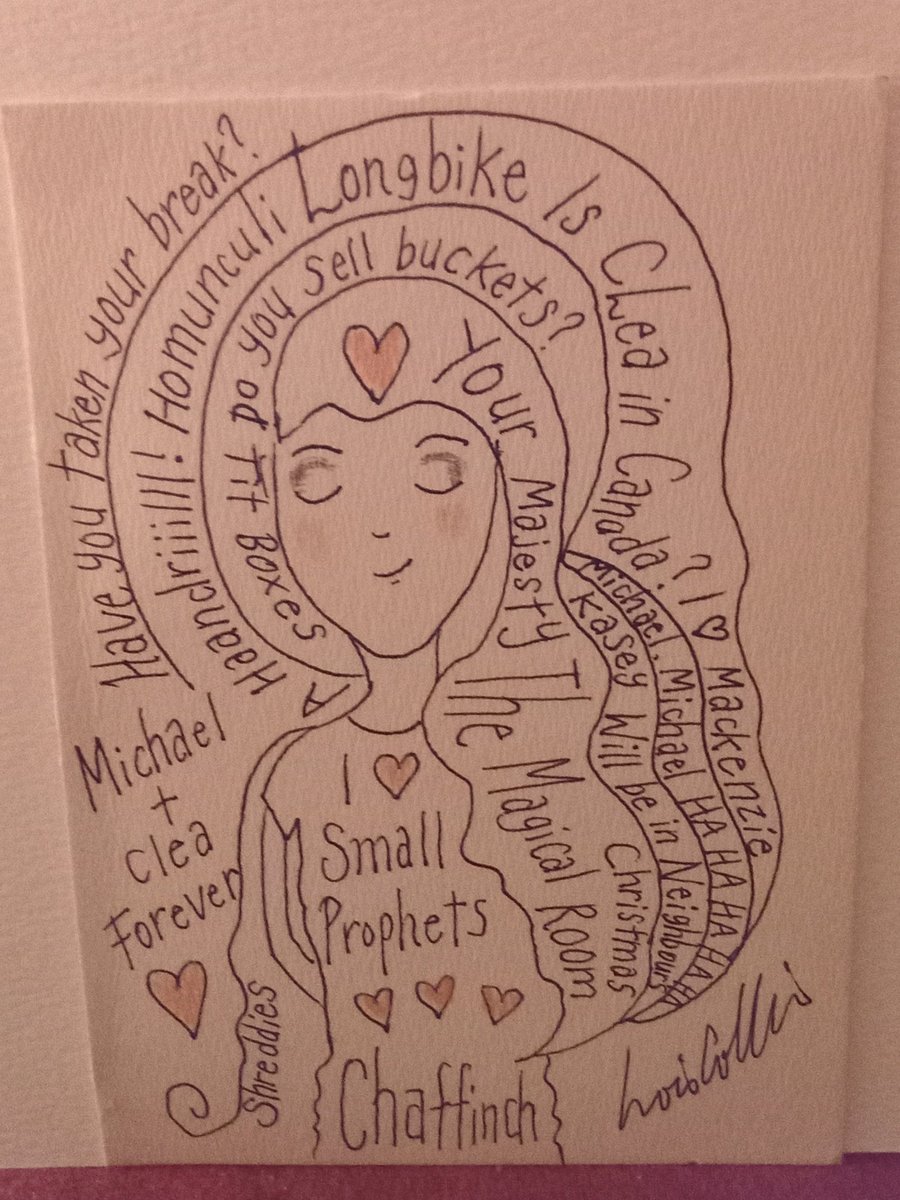 Have you taken your break?
Haandriiilll! Homunculi Longbike Is Clea in Canada? I ♡ Mackenzie
boxes do you sell buckets?
Your Majesty The Magical Room
Michael. Michael HA HA HA HA HA
Kasey Will be in Neighbours
Christmas
Michael
+
Clea
Forever
I ♡
Small
Prophets
Shreddies
Chaffinch
Lois Collis